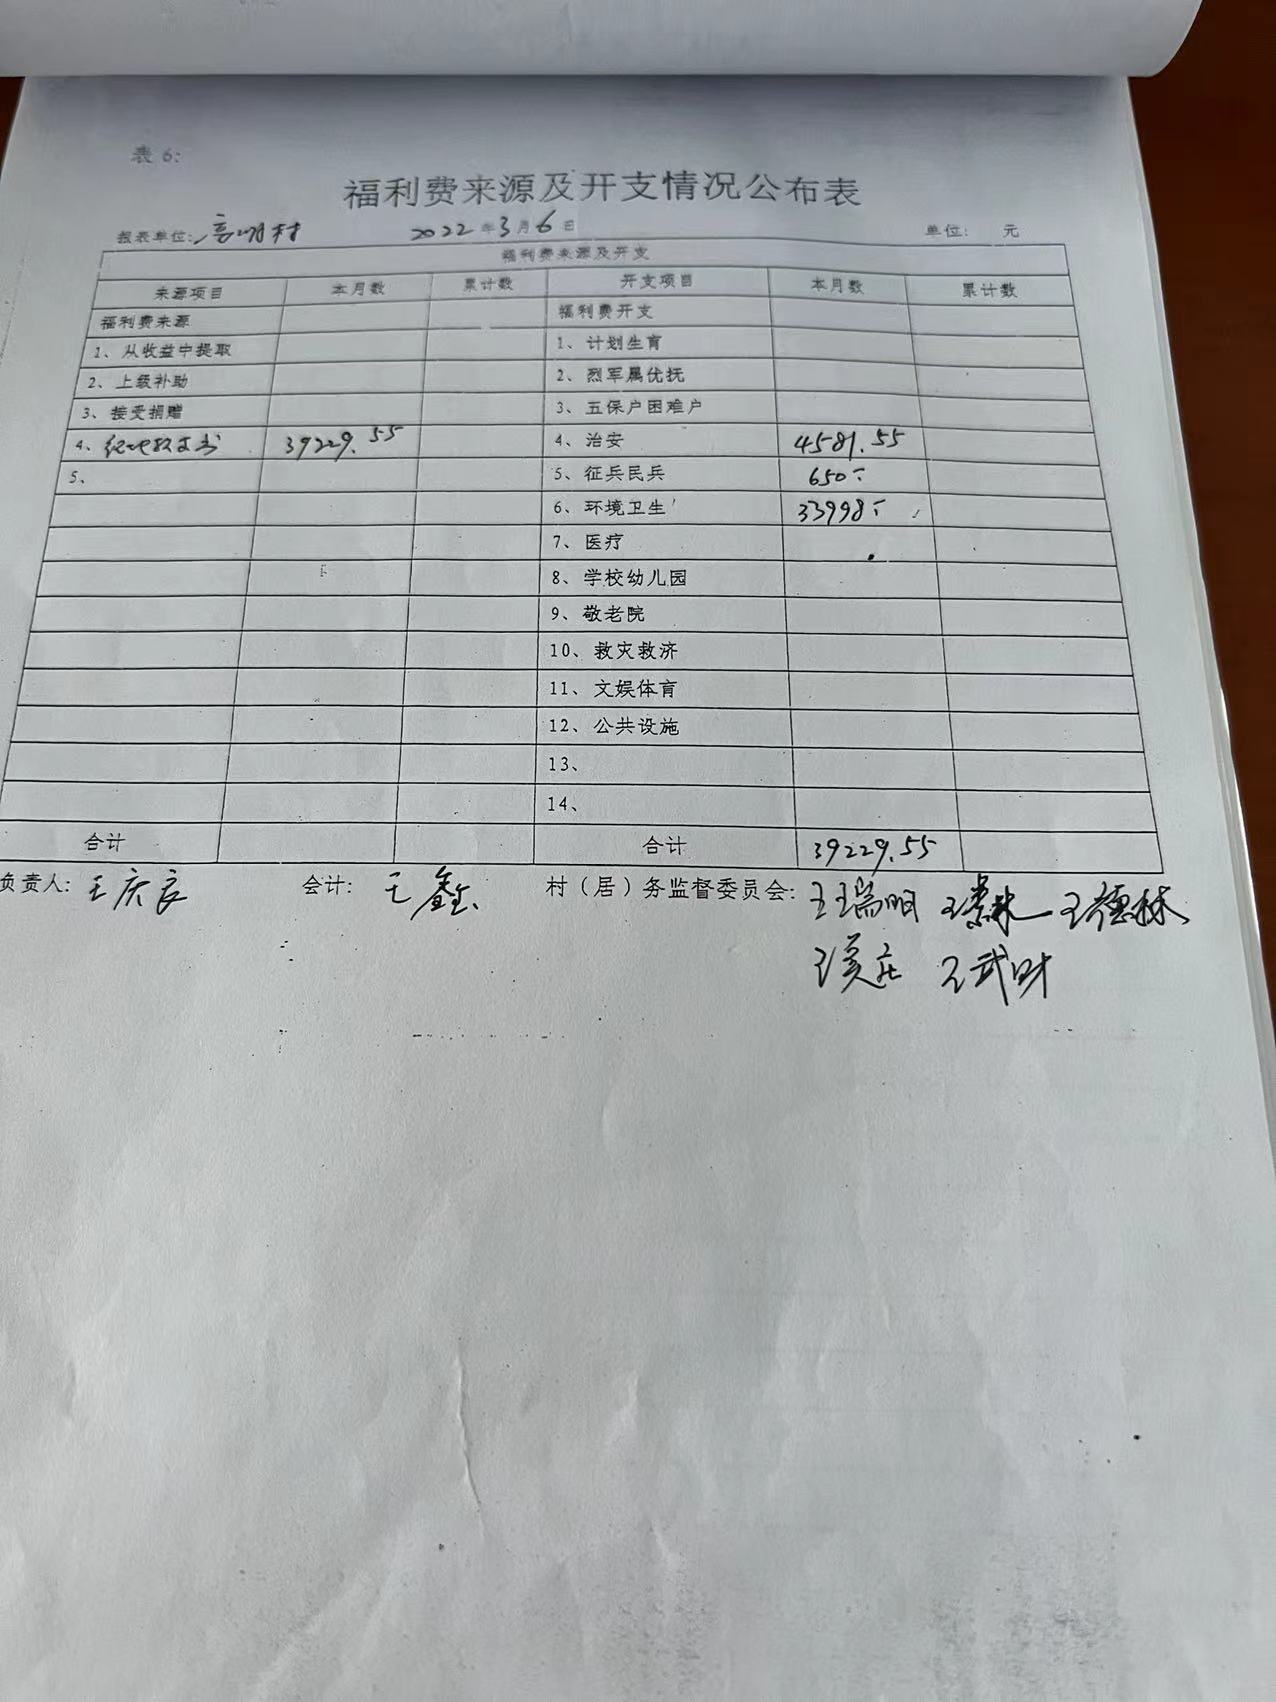 表 6:
福利费来源及开支情况公布表
报表单位: 高明村 2022年3月6日 单位: 元
福利费来源及开支
来源项目 本月数 累计数 开支项目 本月数 累计数
福利费来源 福利费开支
1、从收益中提取 1、计划生育
2、上级补助 2、烈军属优抚
3、接受捐赠 3、五保户困难户
4、 39229.55 4、治安 4581.55
5、 5、征兵民兵 650
6、环境卫生 33998
7、医疗
8、学校幼儿园
9、敬老院
10、救灾救济
11、文娱体育
12、公共设施
13、
14、
合计 合计 39229.55
负责人: 王庆良 会计: 王鑫 村(居)务监督委员会: 王瑞明 王德林
王武财